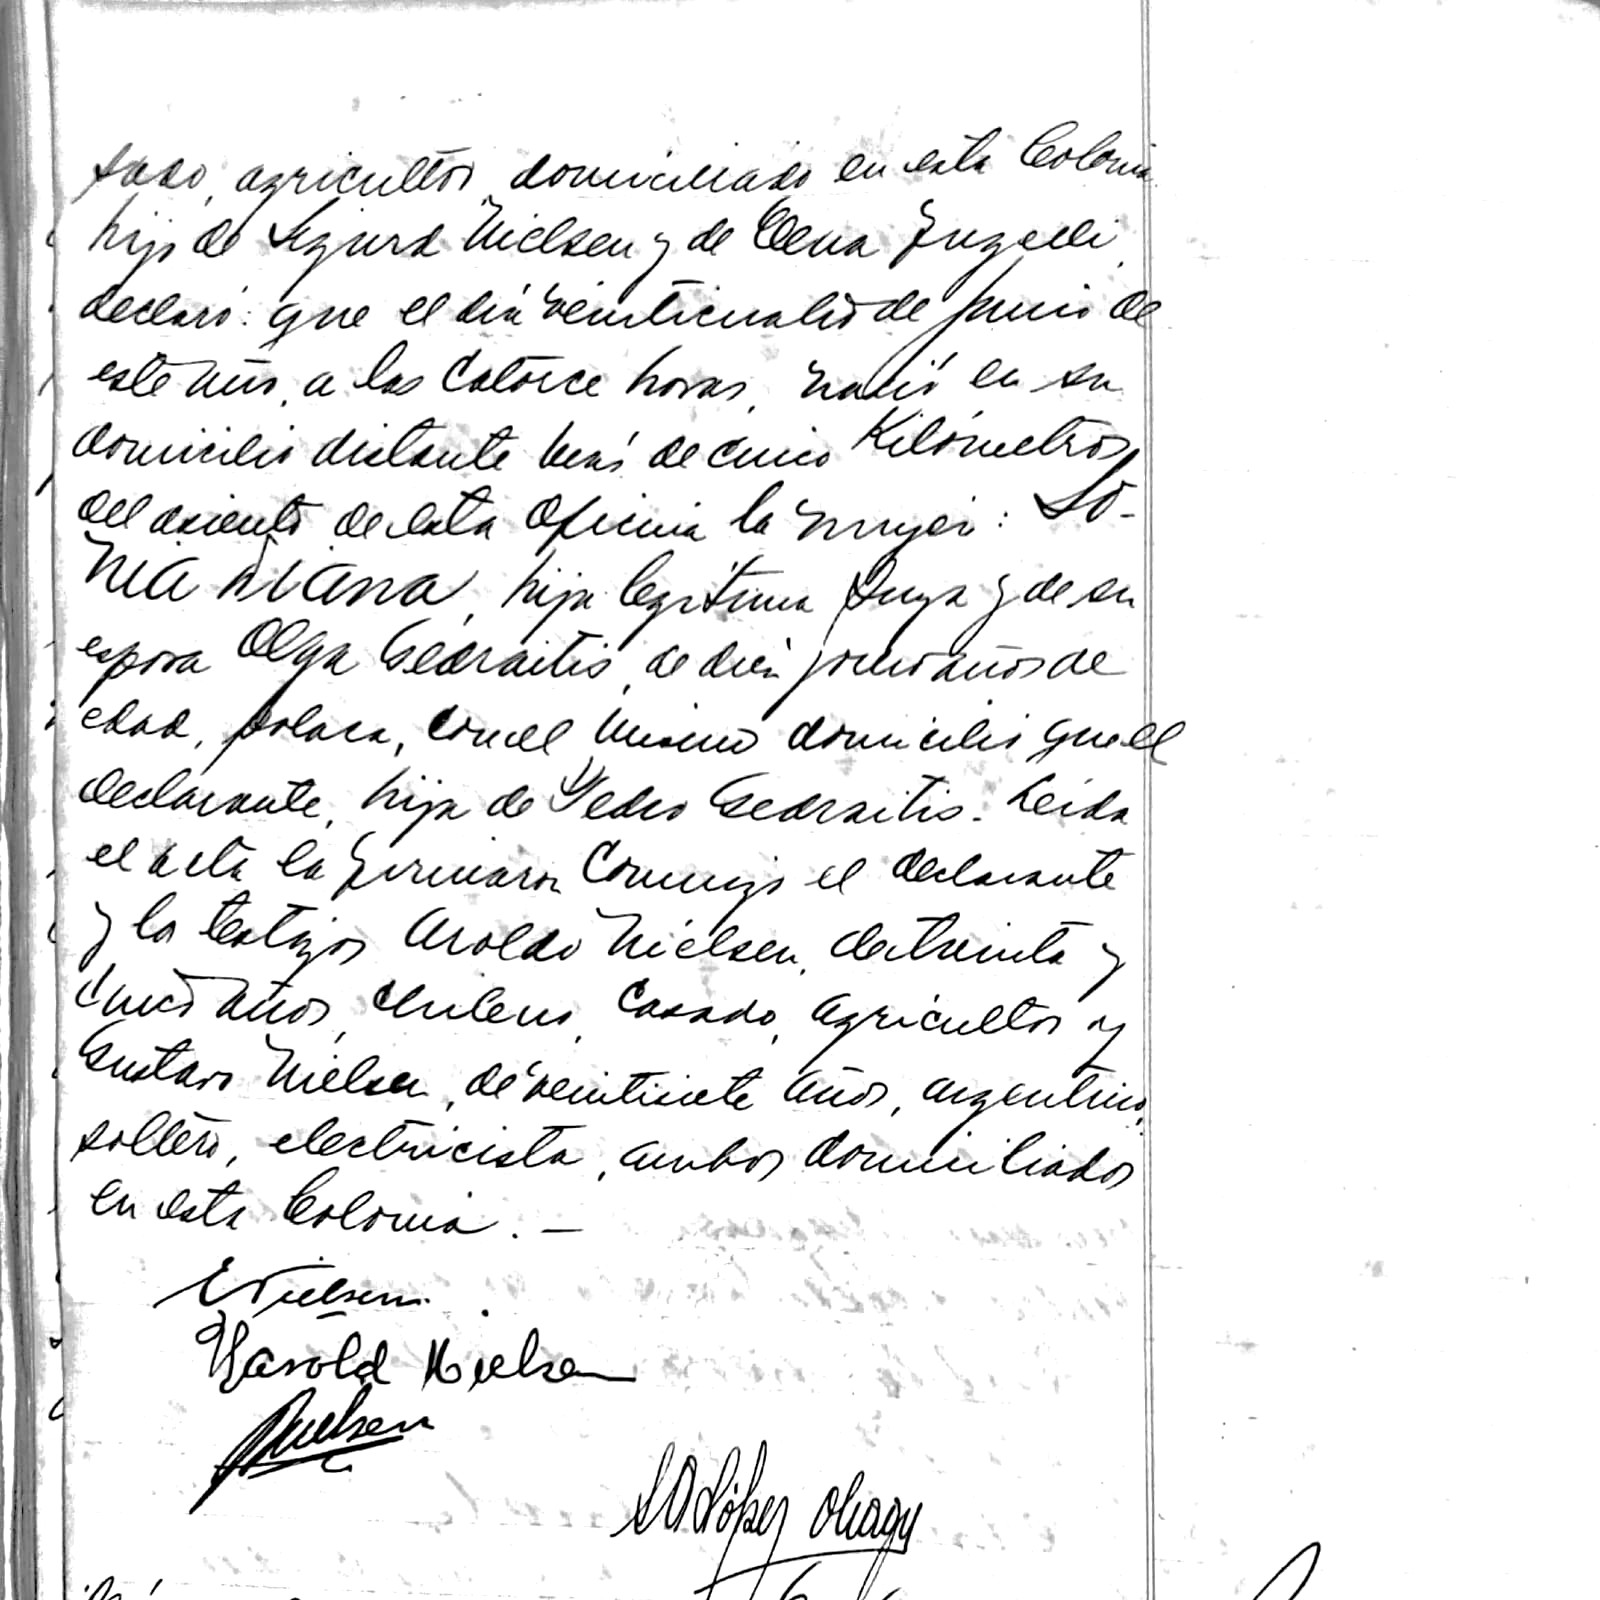 sado, agricultor, domiciliado en esta Colonia
hijo de Sigurd Nielsen y de Elena
declaró: que el día veinticuatro de junio de
este año, a las catorce horas, nació en su
domicilio distante más de cinco Kilómetros
del asiento de esta Oficina la mujer: So-
nia Diana, hija legítima suya y de su
esposa Olga Gedraitis, de diez años de
edad, polaca, con el mismo domicilio que el
declarante, hija de Pedro Gedraitis. Leída
el acta la firmaron conmigo el declarante
y los testigos Aroldo Nielsen, de treinta y
cinco años, chileno, casado, agricultor y
Gustavo Nielsen, de veintisiete años, argentino,
soltero, electricista, ambos domiciliados
en esta Colonia. —
Nielsen
Harold Nielsen
Nielsen
López